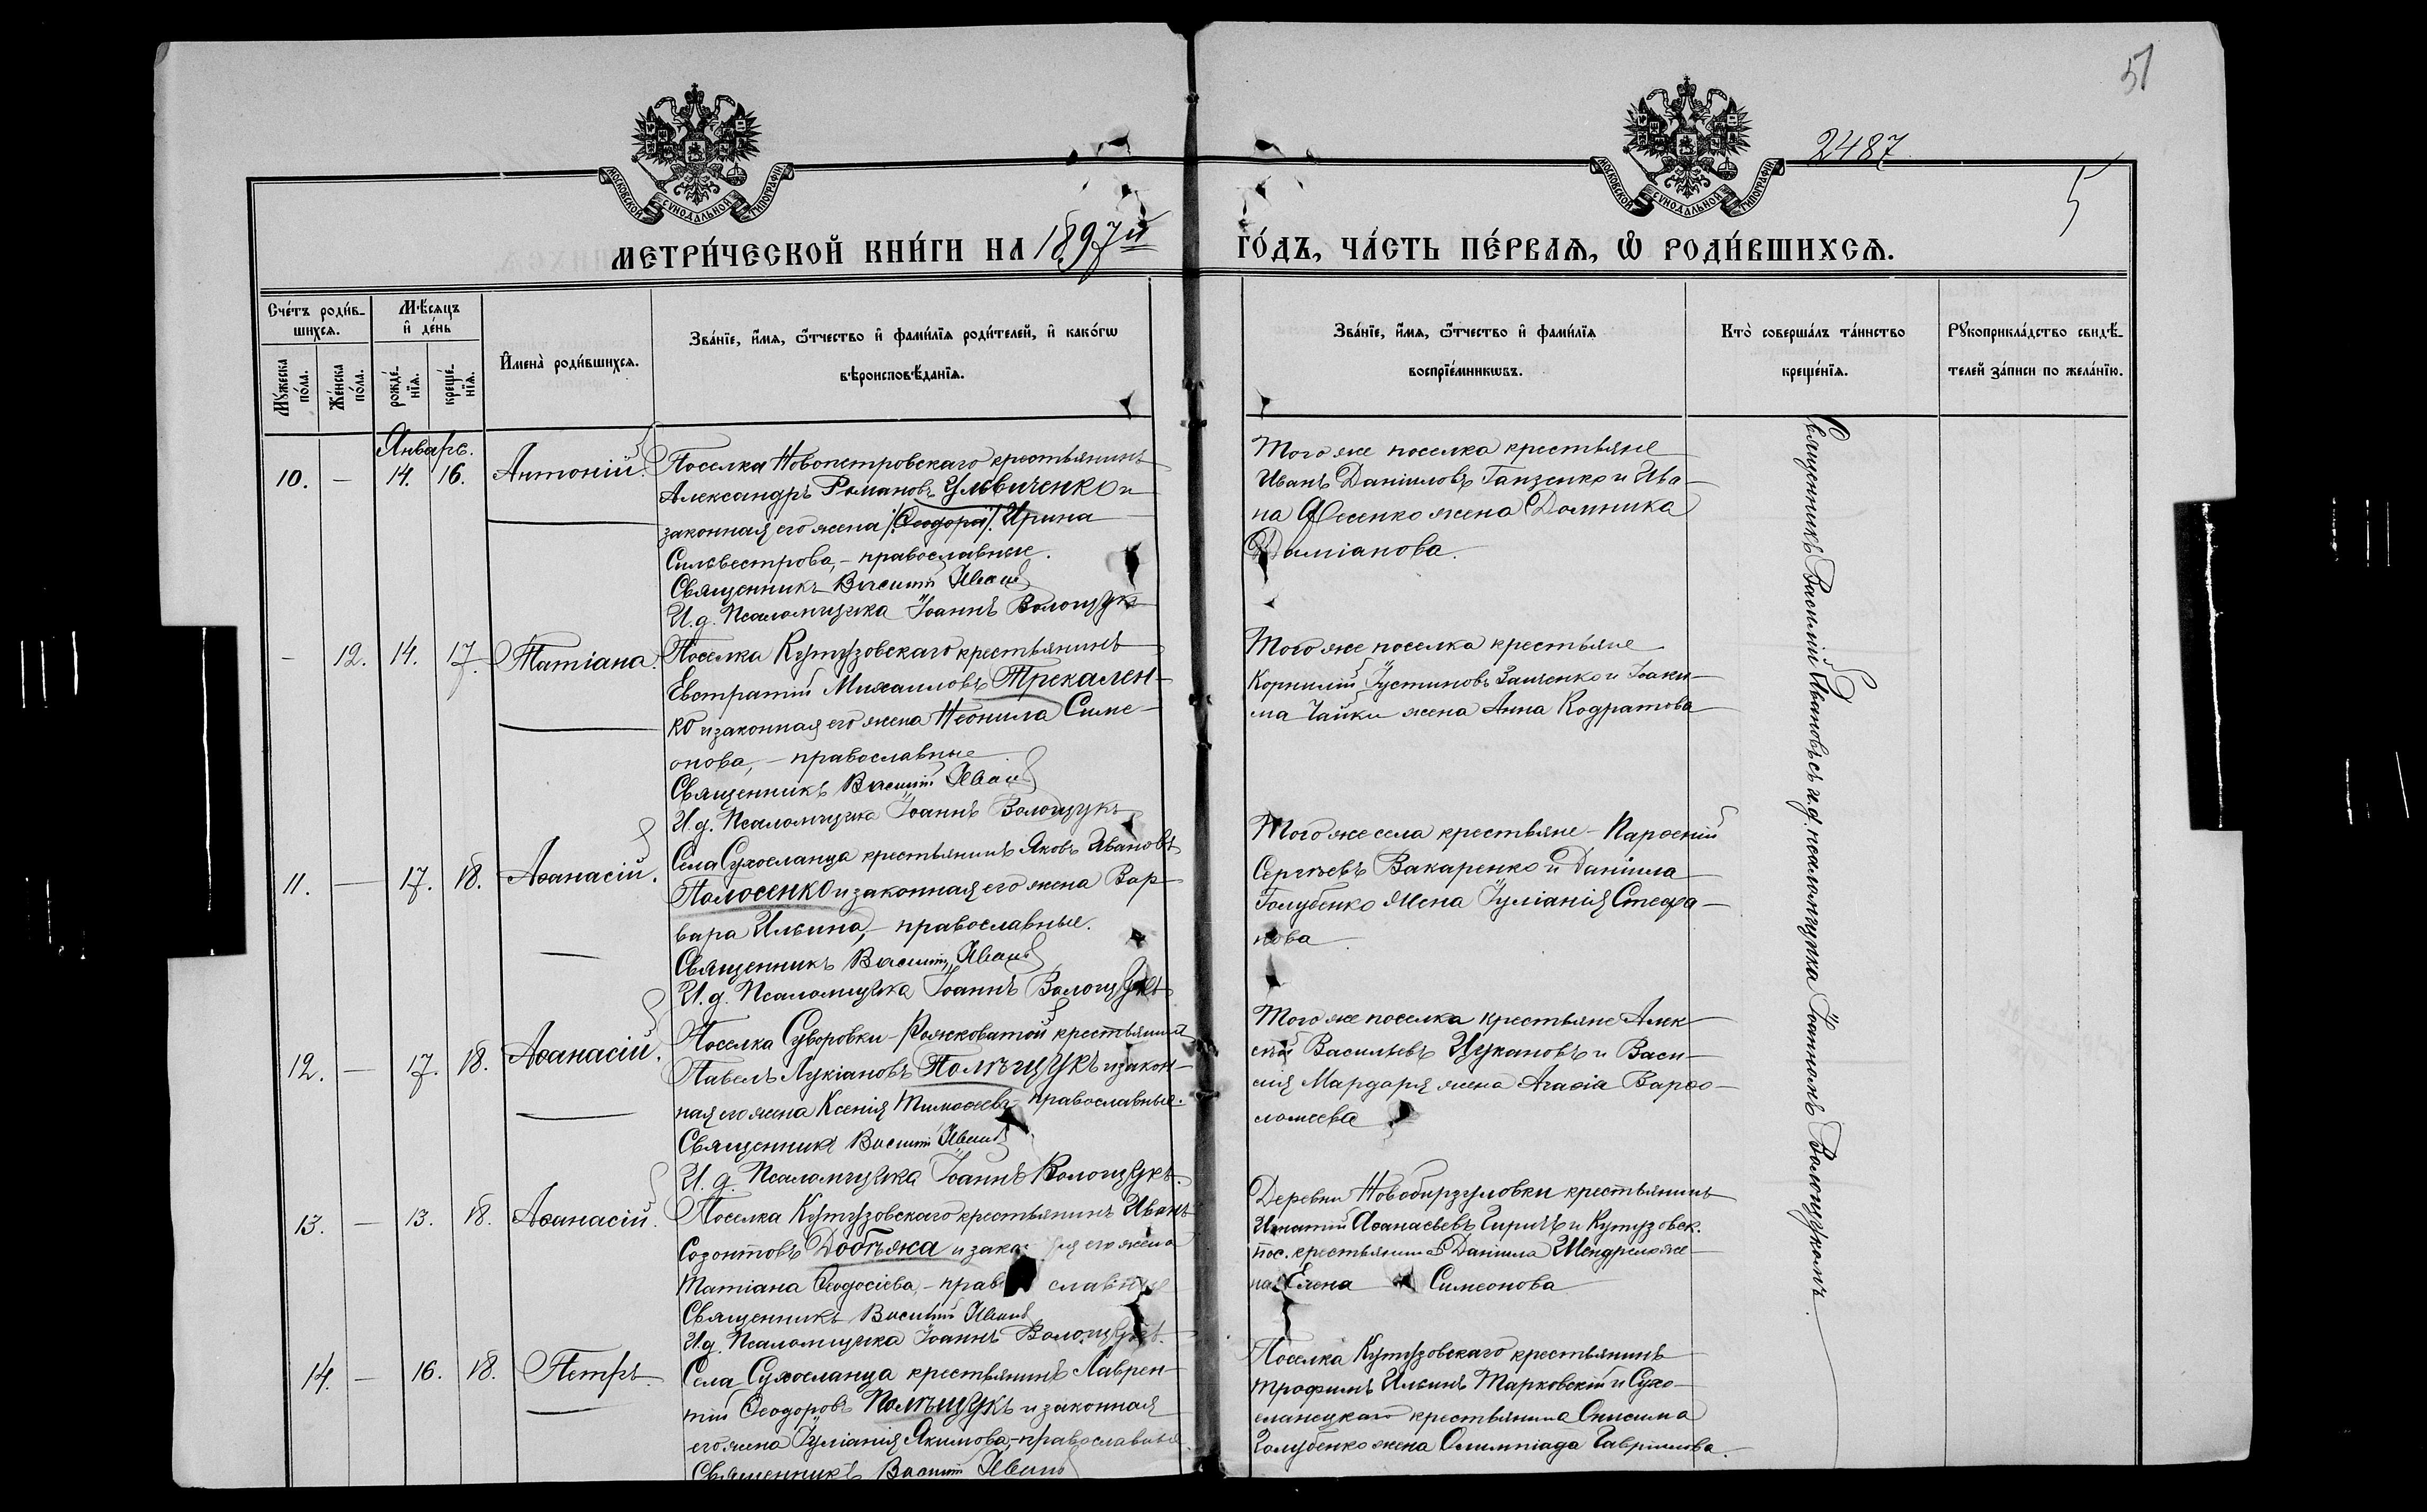 51
2487
5
МОСКОВСКОЙ СѴНОДАЛЬНОЙ ТИПОГРАФІИ
МОСКОВСКОЙ СѴНОДАЛЬНОЙ ТИПОГРАФІИ
МЕТРИ́ЧЕСКОЙ КНИ́ГИ НА 1897й
ГО́ДЪ, ЧА́СТЬ ПЕ́РВАѦ, Ѡ РОДИ́ВШИХСѦ.
Сче́тъ роди́в-
шихсѧ.
Мѣ́сѧцъ
и де́нь
Мꙋ́жеска
по́ла.
Же́нска
по́ла.
рожде́-
нїѧ.
креще́-
нїѧ.
Имена̀ роди́вшихсѧ.
Зва́нїе, и́мѧ, ѻ́тчество и фами́лїѧ роди́телей, и како́гѡ
вѣроисповѣ́данїѧ.
Зва́нїе, и́мѧ, ѻ́тчество и фами́лїѧ
воспрїе́мникѡвъ.
Кто̀ соверша́лъ та́инство
креще́нїѧ.
Рꙋкоприкла́дство свидѣ́-
телей за́писи по жела́нїю.
Январь.
10. — 14. 16. Антоній.
Поселка Новопетровскаго крестьянинъ
Александръ Романовъ Ульвиченко и
законная его жена /Ѳеодора/. Ирина
Сильвестрова, – православные.
Священникъ Василій Ивановъ
И. д. Псаломщика Іоаннъ Волощукъ
Того же поселка крестьяне
Иванъ Даніиловъ Ганзенко и Ива-
на Фесенко жена Домника
Даміанова.
– 12. 14. 17. Татіана.
Поселка Кутузовскаго крестьянинъ
Евстратій Михаиловъ Трекален-
ко и законная его жена Неонила Симе-
онова, – православные
Священникъ Василій Ивановъ
И. д. Псаломщика Іоаннъ Волощукъ
Того же поселка крестьяне
Корнилій Іустиновъ Заиченко и Іоаки-
ма Чайки жена Анна Кодратова
11. — 17. 18. Аѳанасій.
Села Сухоеланца крестьянинъ Яковъ Ивановъ
Полосенко и законная его жена Вар-
вара Ильина, – православные.
Священникъ Василій Ивановъ
И. д. Псаломщика Іоаннъ Волощукъ
Того же села крестьяне – Парѳеній
Сергѣевъ Вакаренко и Даніила
Голубенко жена Іуліанія Стефа-
нова
12. — 17. 18. Аѳанасій.
Поселка Суворовки-Рожковатой крестьянинъ
Павелъ Лукіановъ Полѣщукъ и закон-
ная его жена Ксенія Тимоѳеева – православные.
Священникъ Василій Ивановъ
И. д. Псаломщика Іоаннъ Волощукъ.
Того же поселка крестьяне Алек-
сѣй Васильевъ Цукановъ и Васи-
лія Мардаря жена Агаѳія Варѳо-
ломеева
13. — 13. 18. Аѳанасій.
Поселка Кутузовскаго крестьянинъ Иванъ
Созонтовъ Добѣжа и зако ная его жена
Татіана Ѳеодосіева, – прав славные
Священникъ Василій Ивановъ
И. д. Псаломщика Іоаннъ Волощукъ.
Деревни Новобирзуловки крестьянинъ
Игнатій Аѳанасьевъ Гиричъ и Кутузовск.
пос. крестьянина Даніила Шендрело же-
на Елена Симеонова
14. — 16. 18. Петръ.
Села Сухоеланца крестьянинъ Лаврен-
тій Ѳеодоровъ Полѣщукъ и законная
его жена Іуліанія Якимова, – православные
Священникъ Василій Ивановъ
Поселка Кутузовскаго крестьянинъ
Трофимъ Ильинъ Тарковскій и Сухо-
еланецкаго крестьянина Онисима
Голубенко жена Олимпіада Гавріилова.
Священникъ Василій Ивановъ съ и. д. псаломщика Іоанномъ Волощукомъ.